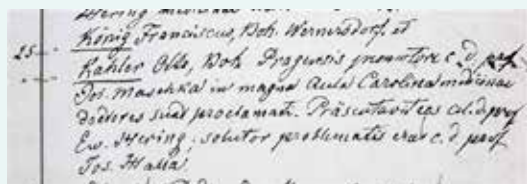 Hering
25 König Franciscus, Boh. Wernersdorf. et
Kahler Otto, Boh. Pragensis promotore c. d. prof
Jos. Maschka in magna Aula Carolina medicinae
doctores sunt proclamati. Präsentavit eos cel. d. prof
Ew. Hering; solutor problematis erat c. d. prof
Jos. Halla